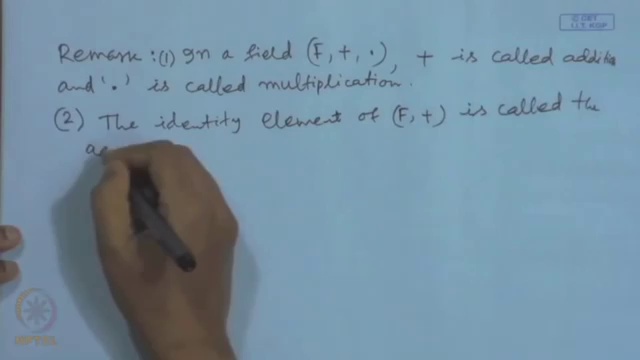 © CET
I.I.T. KGP
Remark : (1) In a field (F, +, ·), + is called additi
and '·' is called multiplication.
(2) The identity element of (F, +) is called the
a
NPTEL